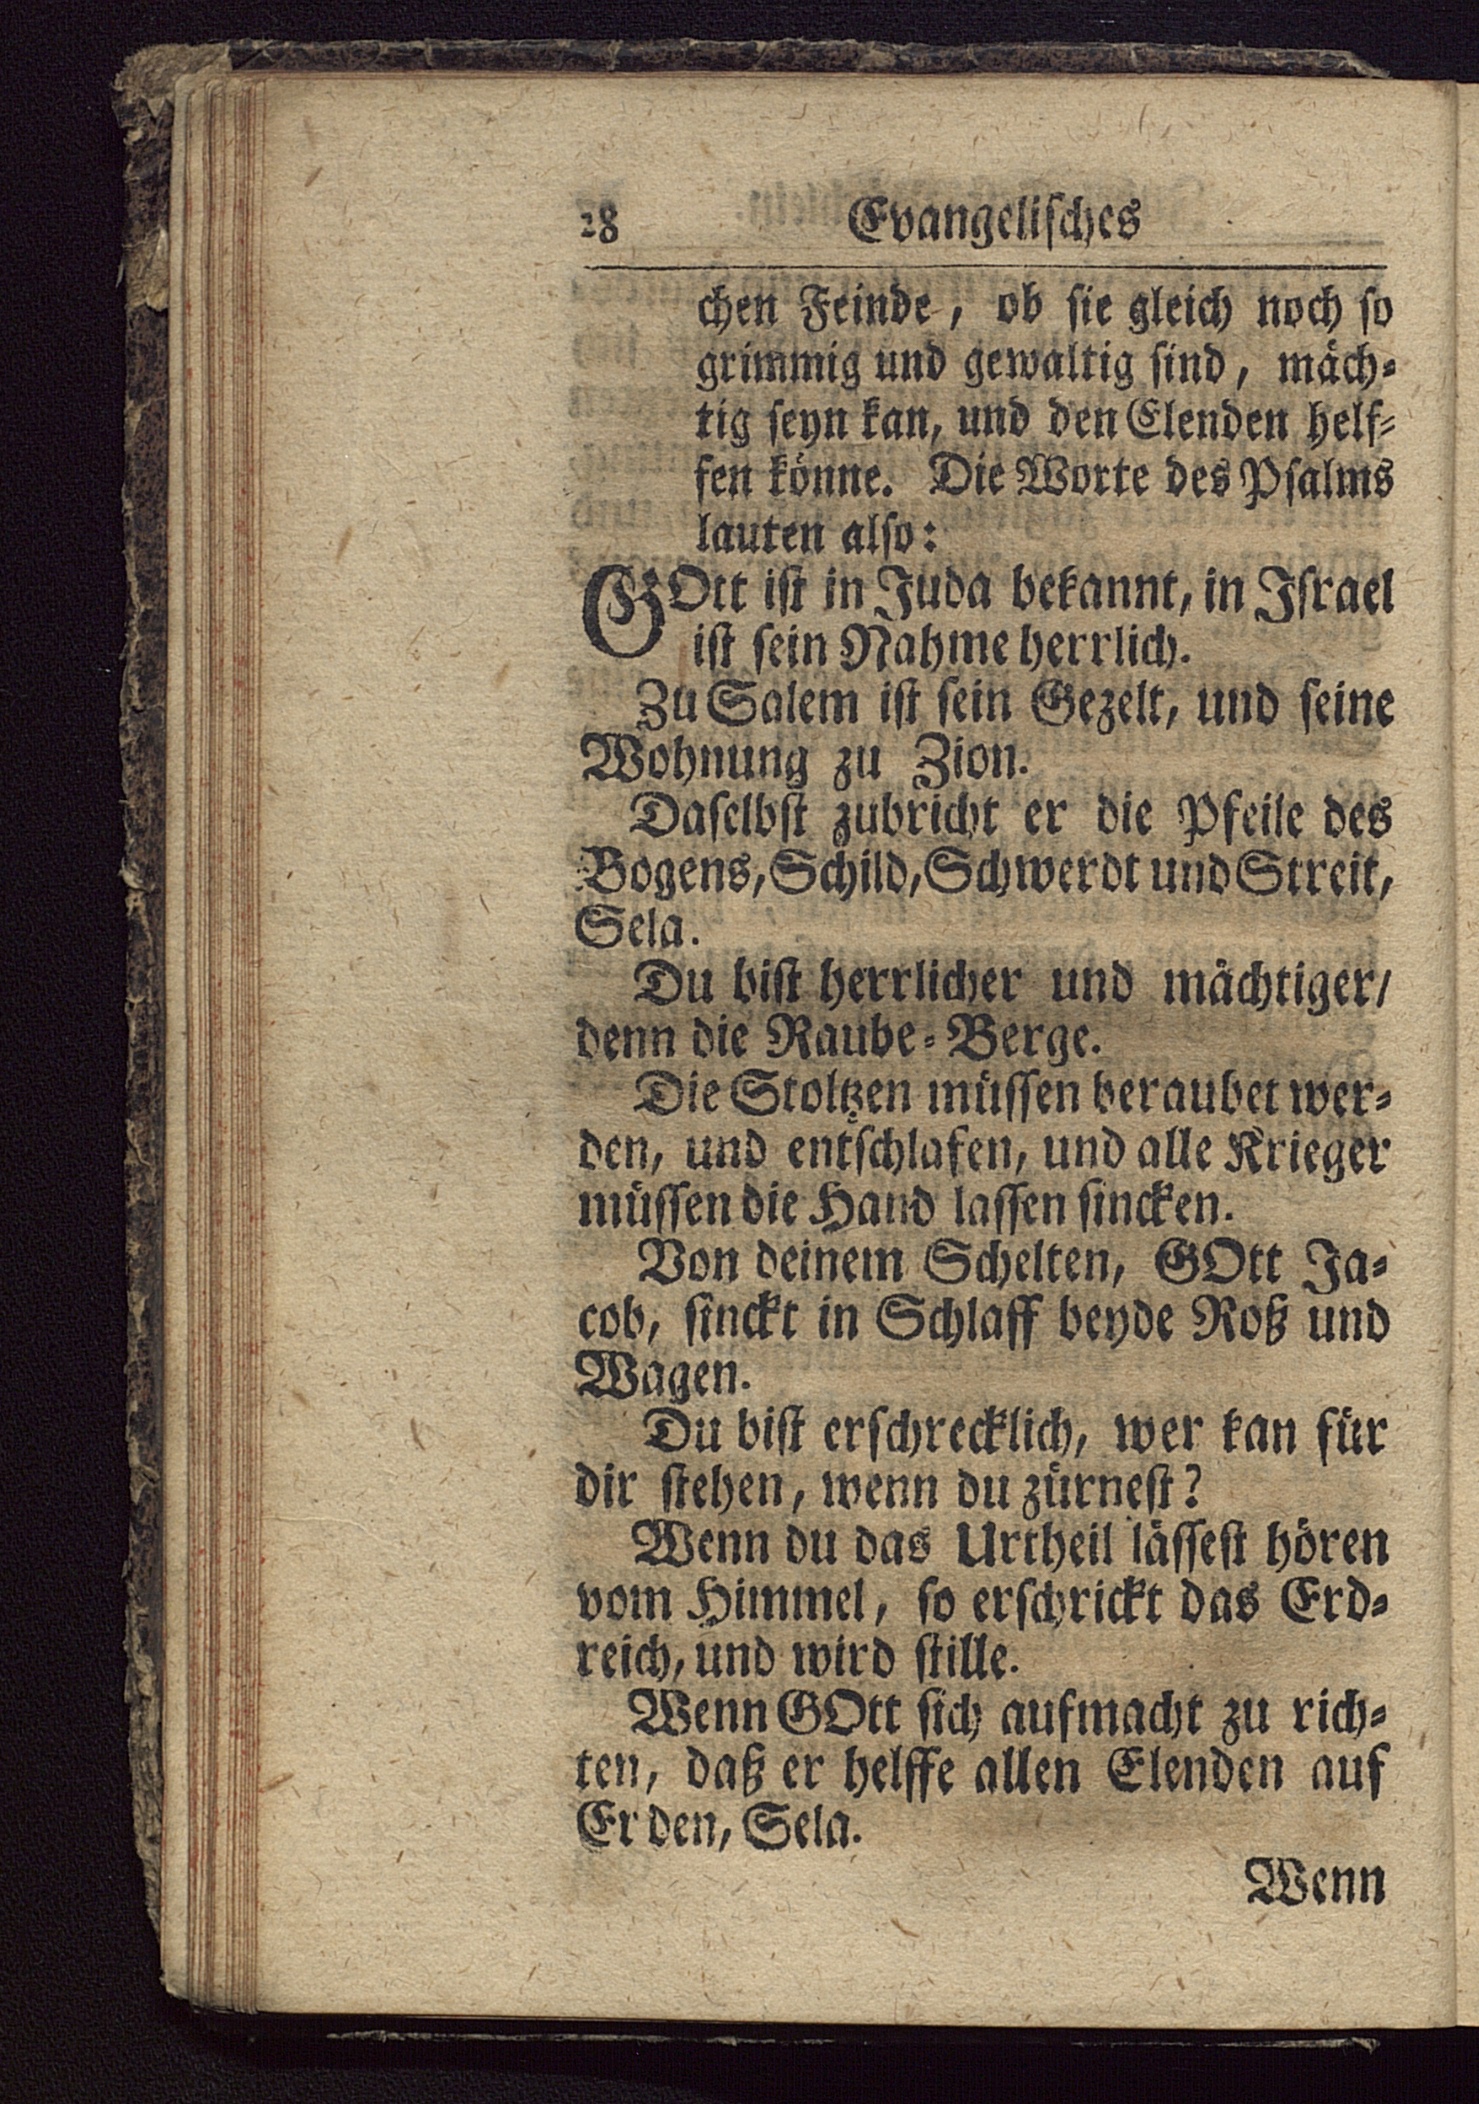 28 Evangelisches
chen Feinde, ob sie gleich noch so
grimmig und gewaltig sind, mäch-
tig seyn kan, und den Elenden helf-
fen könne. Die Worte des Psalms
lauten also:
GOtt ist in Juda bekannt, in Israel
ist sein Nahme herrlich.
Zu Salem ist sein Gezelt, und seine
Wohnung zu Zion.
Daselbst zubricht er die Pfeile des
Bogens, Schild, Schwerdt und Streit,
Sela.
Du bist herrlicher und mächtiger/
denn die Raube-Berge.
Die Stoltzen müssen beraubet wer-
den, und entschlafen, und alle Krieger
müssen die Hand lassen sincken.
Von deinem Schelten, GOtt Ja-
cob, sinckt in Schlaff beyde Roß und
Wagen.
Du bist erschrecklich, wer kan für
dir stehen, wenn du zürnest?
Wenn du das Urtheil lässest hören
vom Himmel, so erschrickt das Erd-
reich, und wird stille.
Wenn GOtt sich aufmacht zu rich-
ten, daß er helffe allen Elenden auf
Erden, Sela.
Wenn